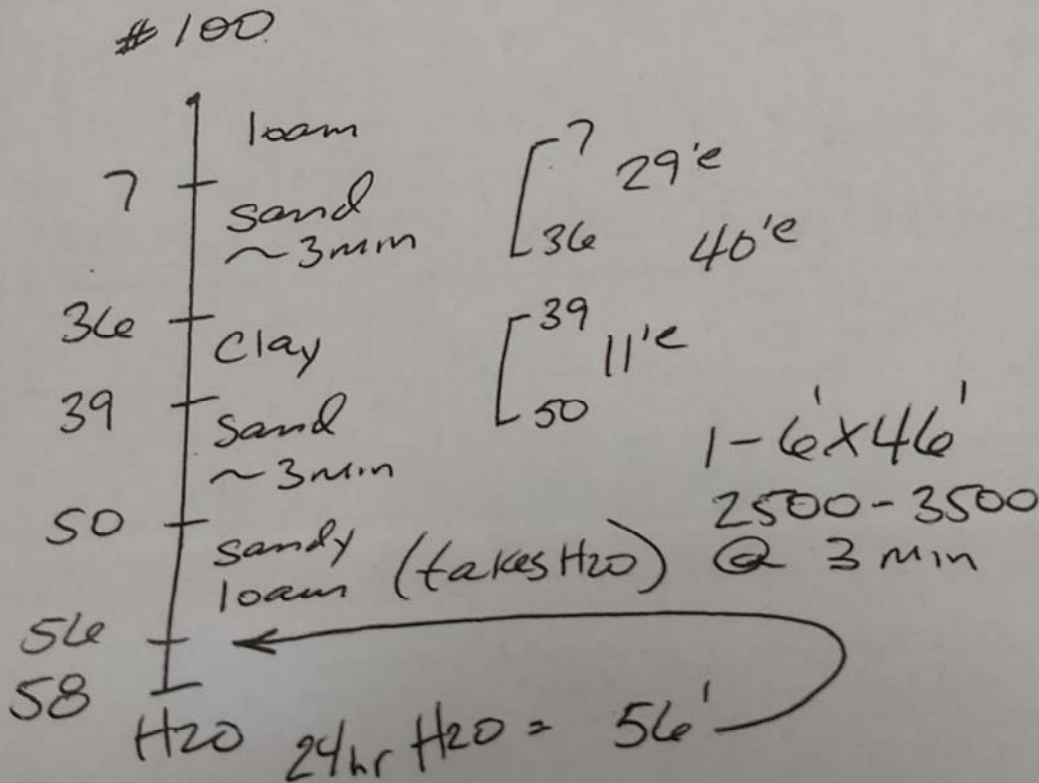 #100
loam
7
sand
~3min
36
Clay
39
sand
~3min
50
sandy
loam (takes H2O)
56
58
H2O 24hr H2O = 56'
7
29'e
36
40'e
39
11'e
50
1-6'x46'
2500-3500
@ 3 min